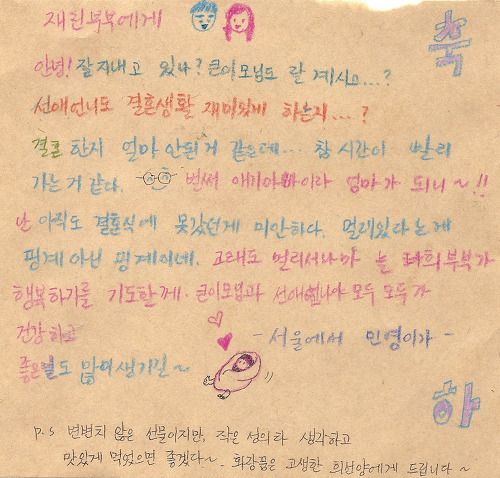 재훤부부에게
축
안녕! 잘 지내고 있나? 큰이모님도 잘 계시고...?
선애언니도 결혼생활 재미있게 하는지....?
결혼 한지 얼마 안된거 같은데... 참 시간이 빨리
가는거 같다. 벌써 애기아빠이라 엄마가 되니~!!
난 아직도 결혼식에 못갔던게 미안하다. 멀리있다는게
핑계아닌 핑계이네. 그래도 멀리서나마 늘 너희부부가
행복하기를 기도할께. 큰이모님과 선애언니와 모두 모두가
건강하고
좋은일도 많이생기길~
- 서울에서 민영이가 -
하
P.S 변변치 않은 선물이지만, 작은 성의라 생각하고
맛있게 먹었으면 좋겠다~. 화장품은 고생한 희선양에게 드립니다~